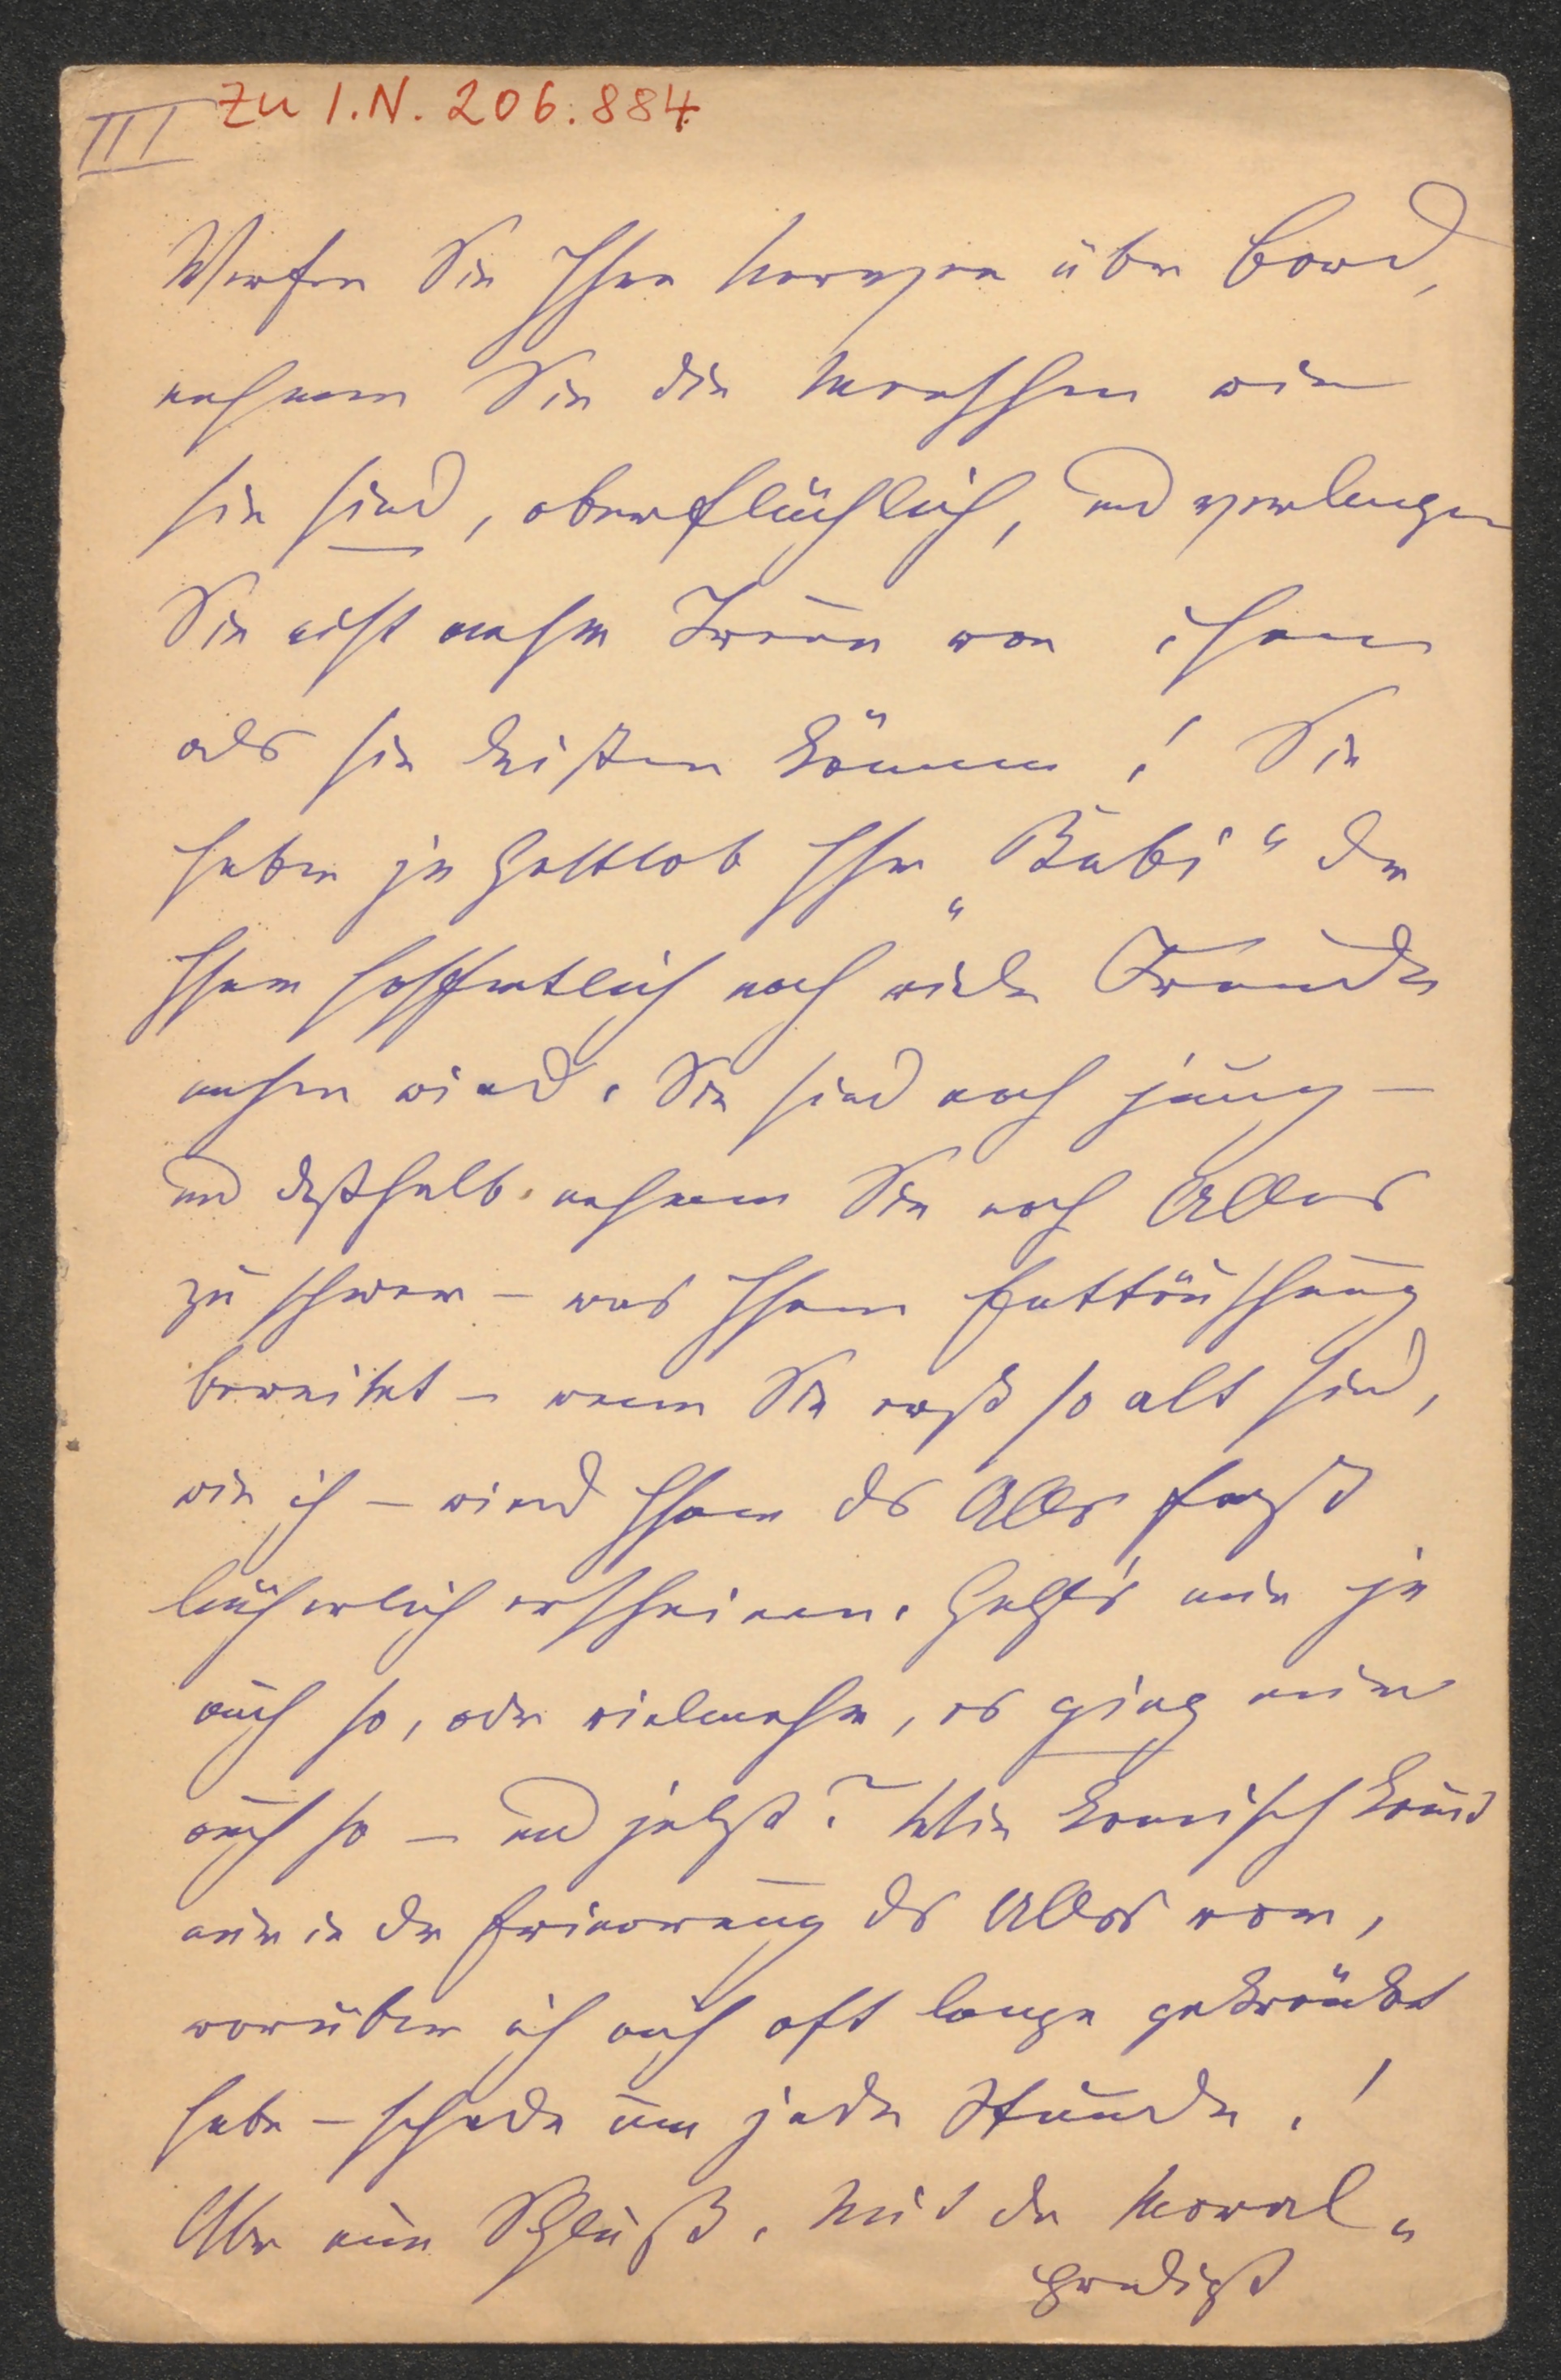 III zu I.N. 206.884
Werfen Sie Ihre Nerven über Bord,
nehmen Sie die Menschen wie
sie sind, oberflächlich, und verlangen
Sie nicht mehr Treue von ihnen
als sie leisten können! Sie
haben ja Gottlob Ihr „Bubi“ der
Ihnen hoffentlich noch viele Freude
machen wird. Sie sind noch jung –
und deßhalb nehmen Sie noch Alles
zu schwer – was Ihnen Enttäuschung
bereitet – wenn Sie erst so alt sind,
wie ich – wird Ihnen das Alles fast
lächerlich erscheinen. Geht's mir ja
auch so, oder vielmehr, es ging mir
auch so – und jetzt? Wie komisch kommt
mir in der Erinnerung das Alles vor,
worüber ich mich oft lange gekränkt
habe – schade um jede Stunde!
Aber nun Schluß. Mit der Moral-
predigt